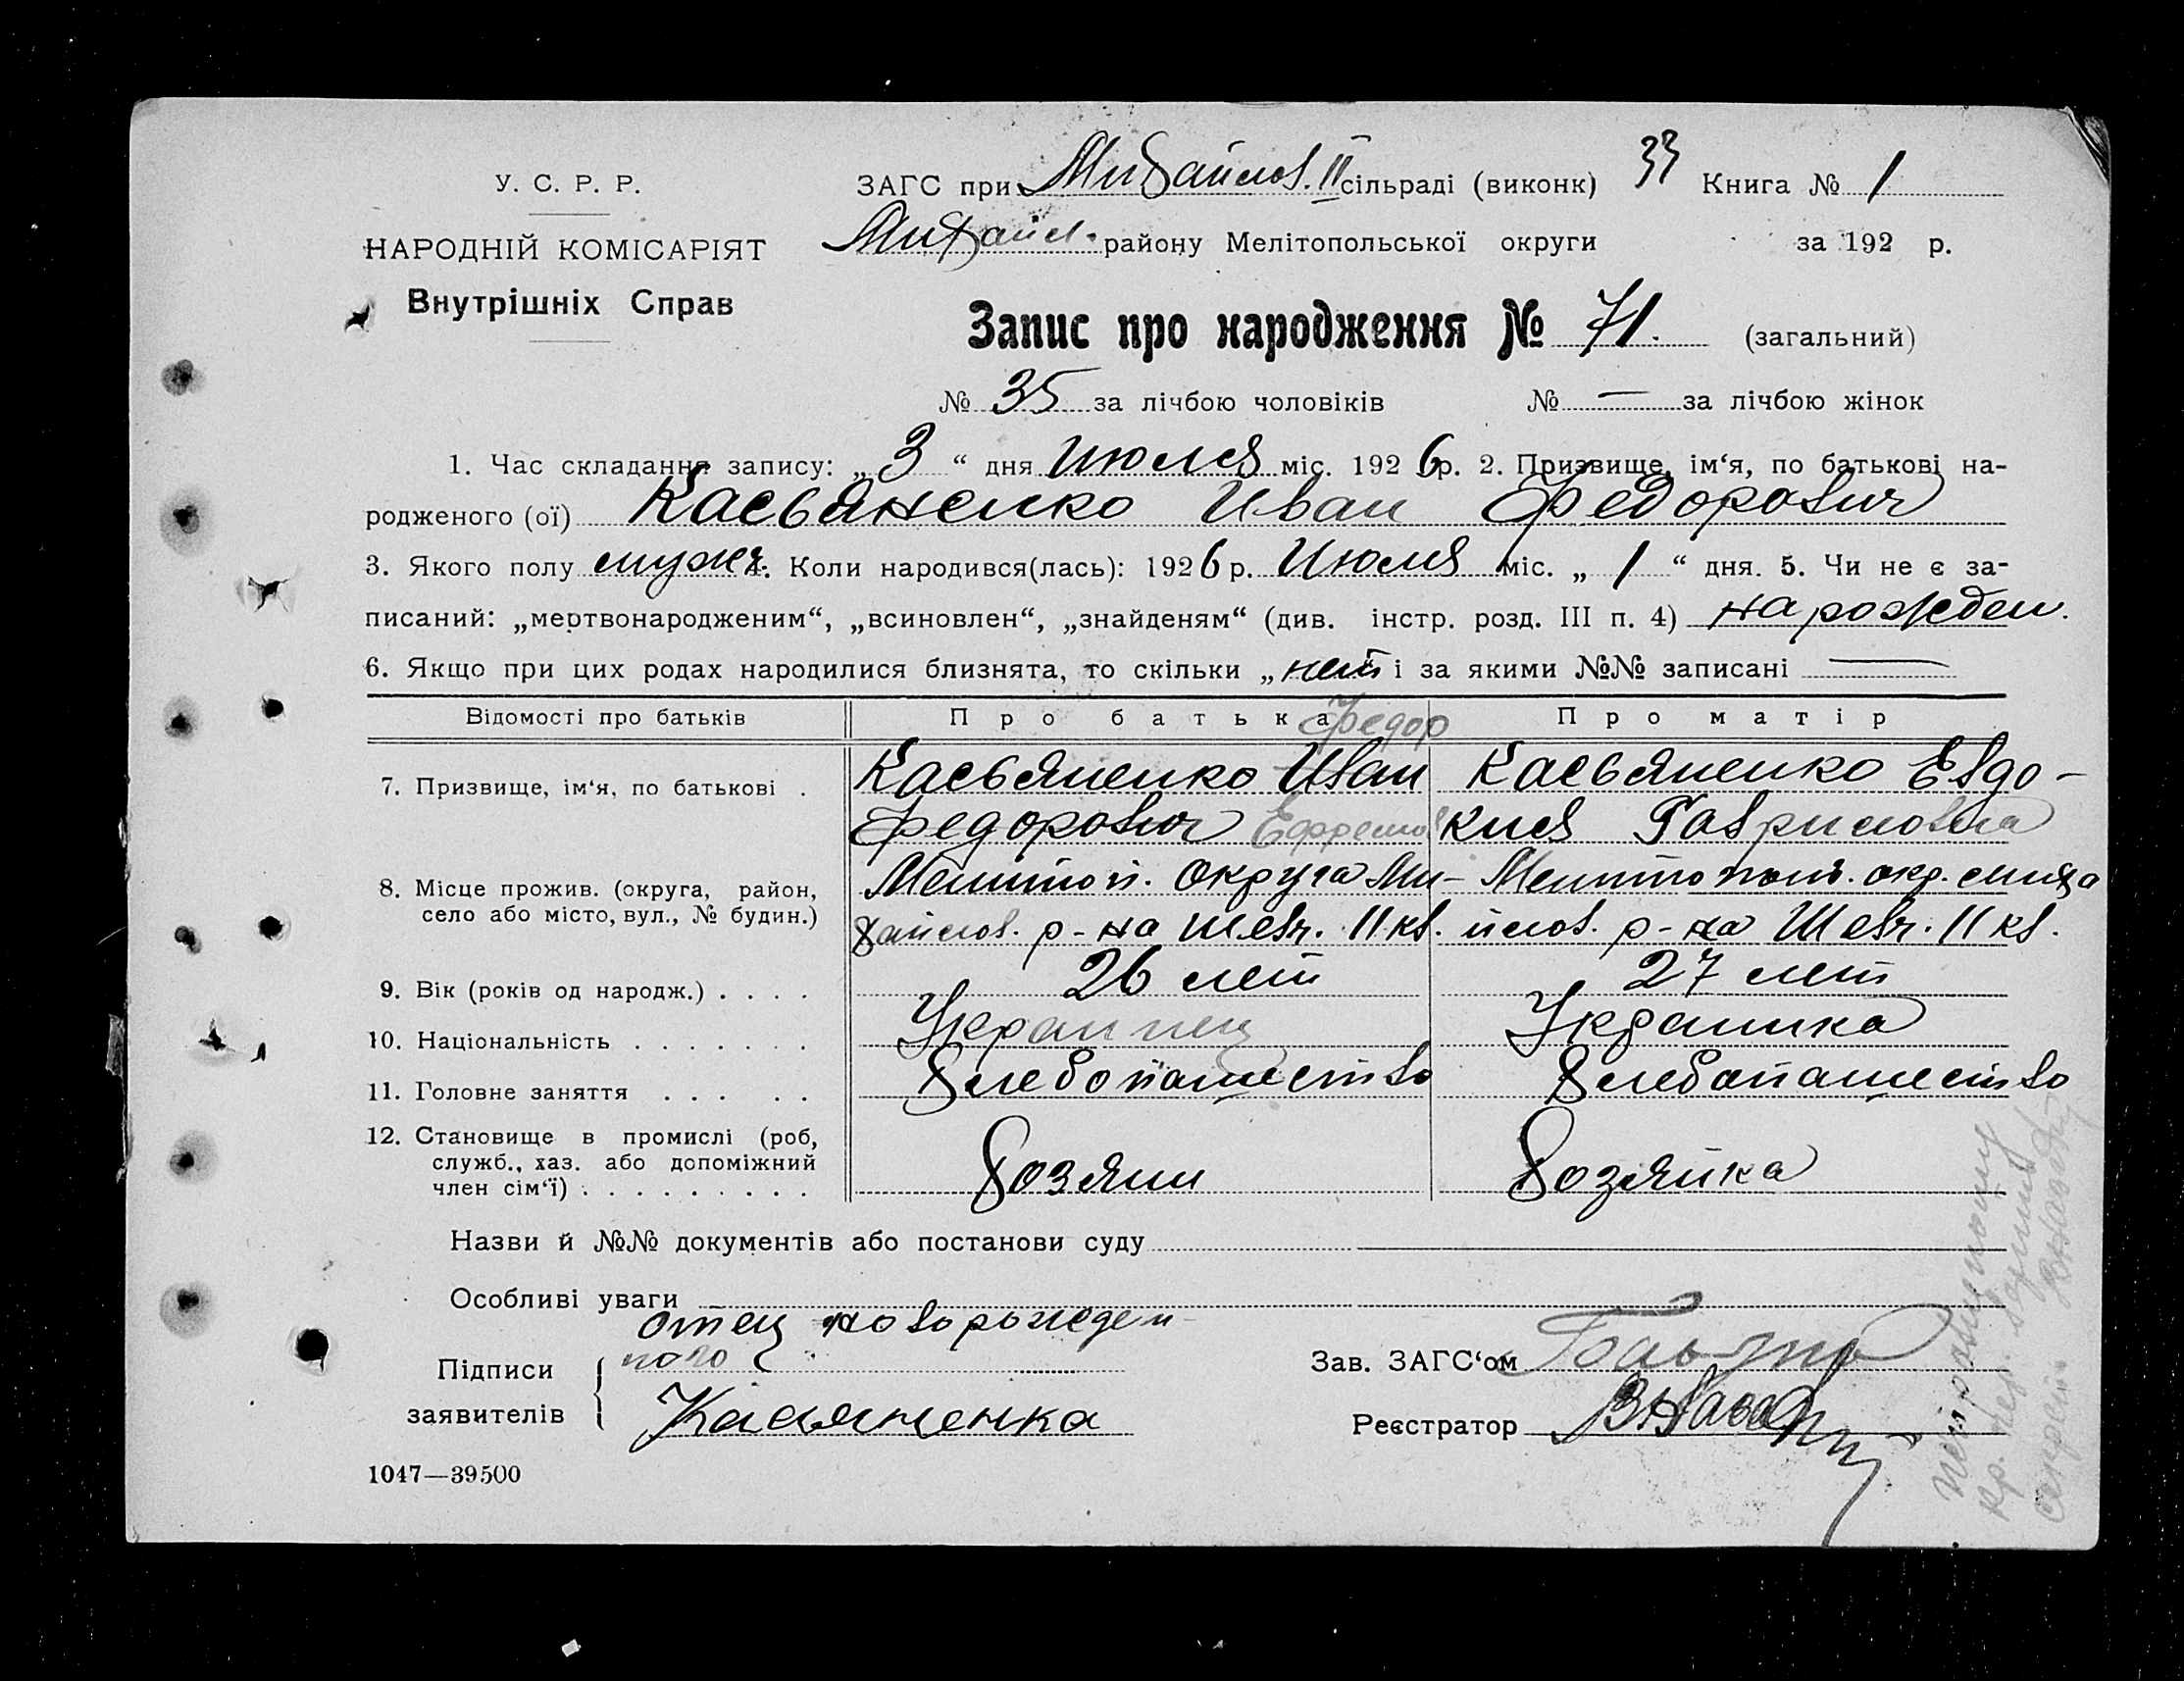 У. С. Р. Р.
НАРОДНІЙ КОМІСАРІЯТ
Внутрішніх Справ
ЗАГС при Михайлов. II сільраді (виконк) 33 Книга № 1
Михайл. району Мелітопольської округи за 192 р.
Запис про народження № 71. (загальний)
№ 35 за лічбою чоловіків № — за лічбою жінок
1. Час складання запису: „ 3 “ дня Июля міс. 1926 р. 2. Призвище, ім‘я, по батькові на-
родженого (ої) Касьяненко Иван Федорович
3. Якого полу мужч. 4. Коли народився(лась): 1926 р. Июля міс. „ 1 “ дня. 5. Чи не є за-
писаний: „мертвонародженим“, „всиновлен“, „знайденям“ (див. інстр. розд. III п. 4) нарожден.
6. Якщо при цих родах народилися близнята, то скільки „ нет і за якими №№ записані —
Відомості про батьків Про батька Про матір
Федор
7. Призвище, ім‘я, по батькові . Касьяненко Иван Касьяненко Евдо-
Федорович Ефремов кия Гавриловна
8. Місце прожив. (округа, район, Мелитоп. Округа Ми- Мелитополь. окр. миха
село або місто, вул., № будин.) хайлов. р-на Шевч. 11 кв. йлов. р-на Шевч. 11 кв.
9. Вік (років од народж.) . . . . 26 лет 27 лет
10. Національність . . . . . . . Украинец Украинка
11. Головне заняття . . . . . Хлебопашество Хлебапашество
12. Становище в промислі (роб,
служб., хаз. або допоміжний Хозяин Хозяйка
член сім‘ї) . . . . . . . . .
Назви й №№ документів або постанови суду
Особливі уваги
отец новорожден-
ного
Підписи
заявителів Касяненка
Зав. ЗАГС‘ом
Реєстратор
1047—39500